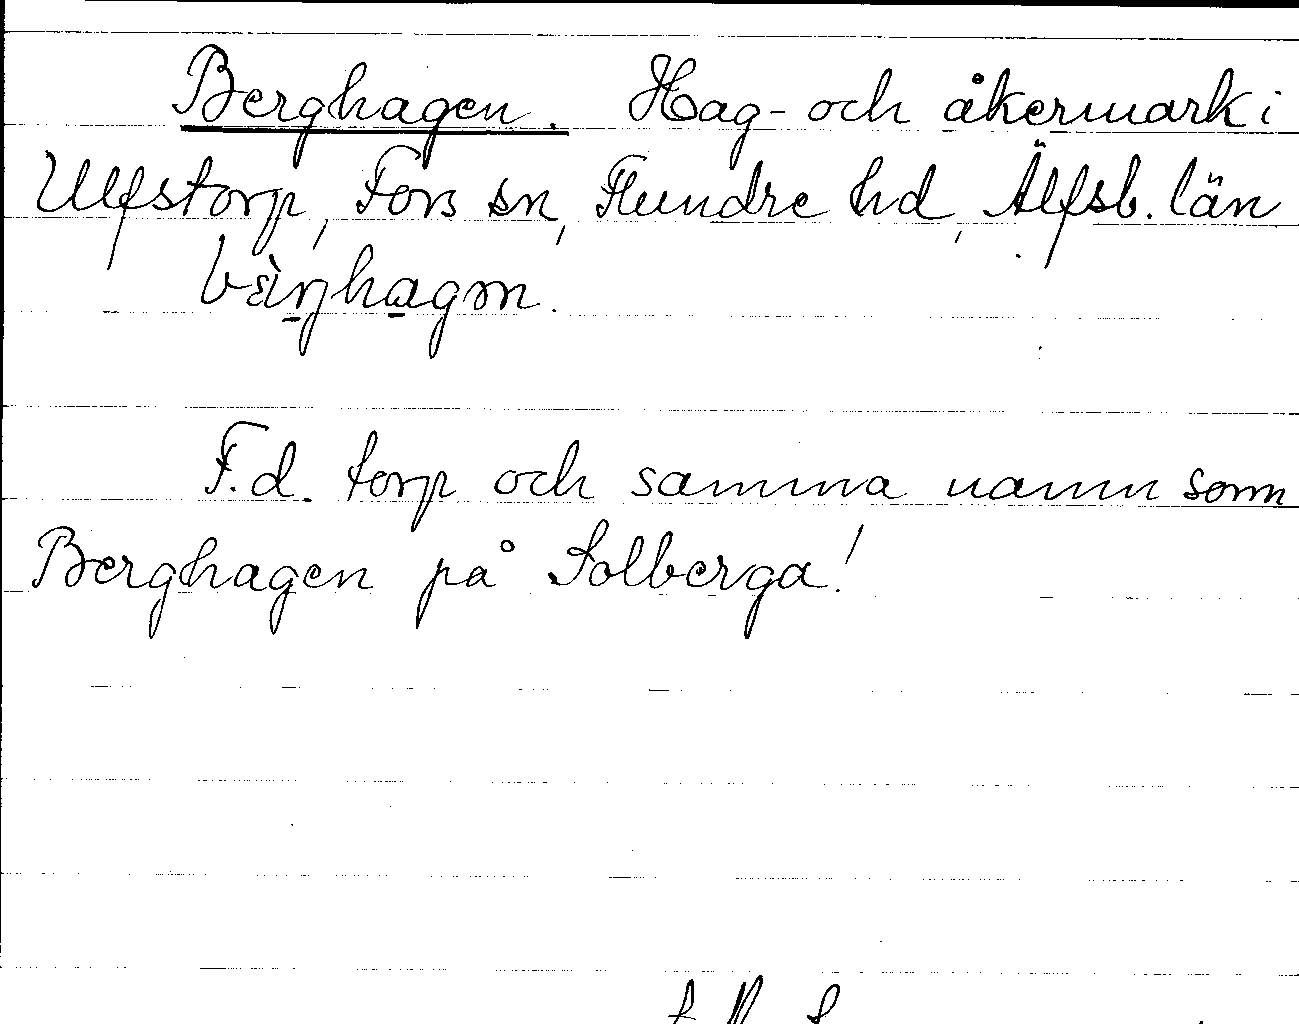 Berghagen. Hag- och åkermark i
Ulfstorp, Fors sn, Flundre hd, Älfsb. län
F.d. torp och samma namn som
Berghagen på Solberga!